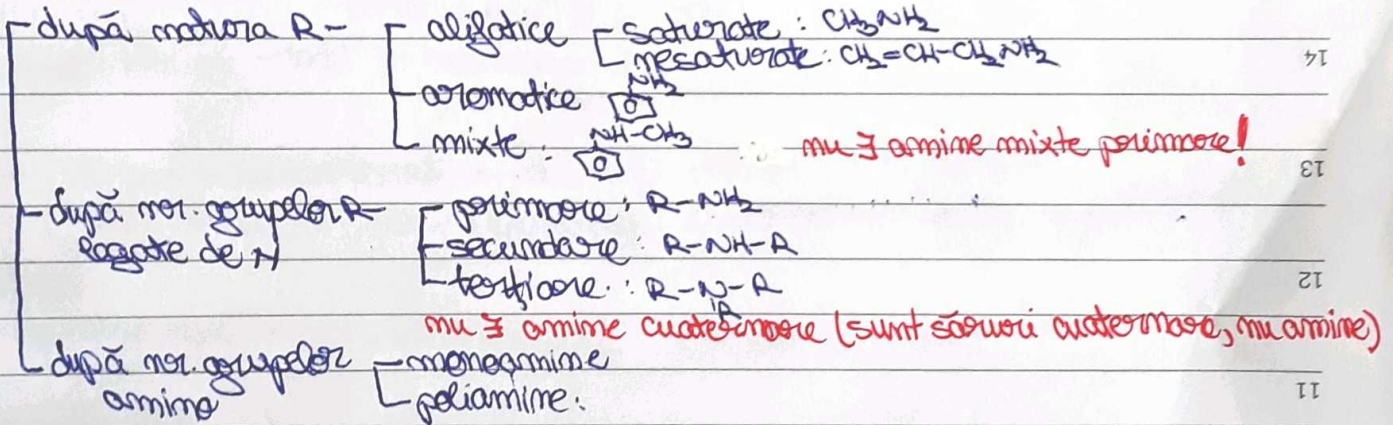 după natura R- alifatice saturate: CH3NH2
nesaturate: CH2=CH-CH2NH2
aromatice NH2
mixte: NH-CH3
nu ∃ amine mixte primare!
după nr. grupelor R- primare: R-NH2
legate de N secundare: R-NH-R
terțiare: R-N-R
R
nu ∃ amine cuaternare (sunt săruri cuaternare, nu amine)
după nr. grupelor monoamine
amino poliamine.
14
13
12
11